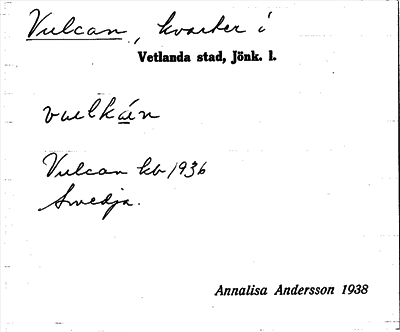 Vulcan, kvarter i
Vetlanda stad, Jönk. l.
vulkán
Vulcan kb 1936
Smedja.
Annalisa Andersson 1938